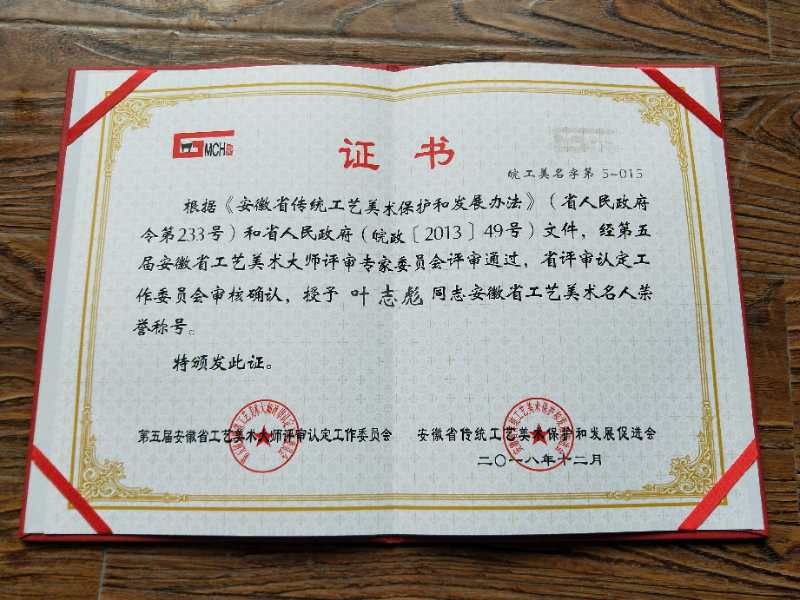 MCH
证书
皖工美名字第 5-015
根据《安徽省传统工艺美术保护和发展办法》(省人民政府
令第233号)和省人民政府(皖政〔2013〕49号)文件,经第五
届安徽省工艺美术大师评审专家委员会评审通过,省评审认定工
作委员会审核确认,授予 叶志彪 同志安徽省工艺美术名人荣
誉称号。
特颁发此证。
第五届安徽省工艺美术大师评审认定工作委员会
安徽省传统工艺美术保护和发展促进会
二〇一八年十二月